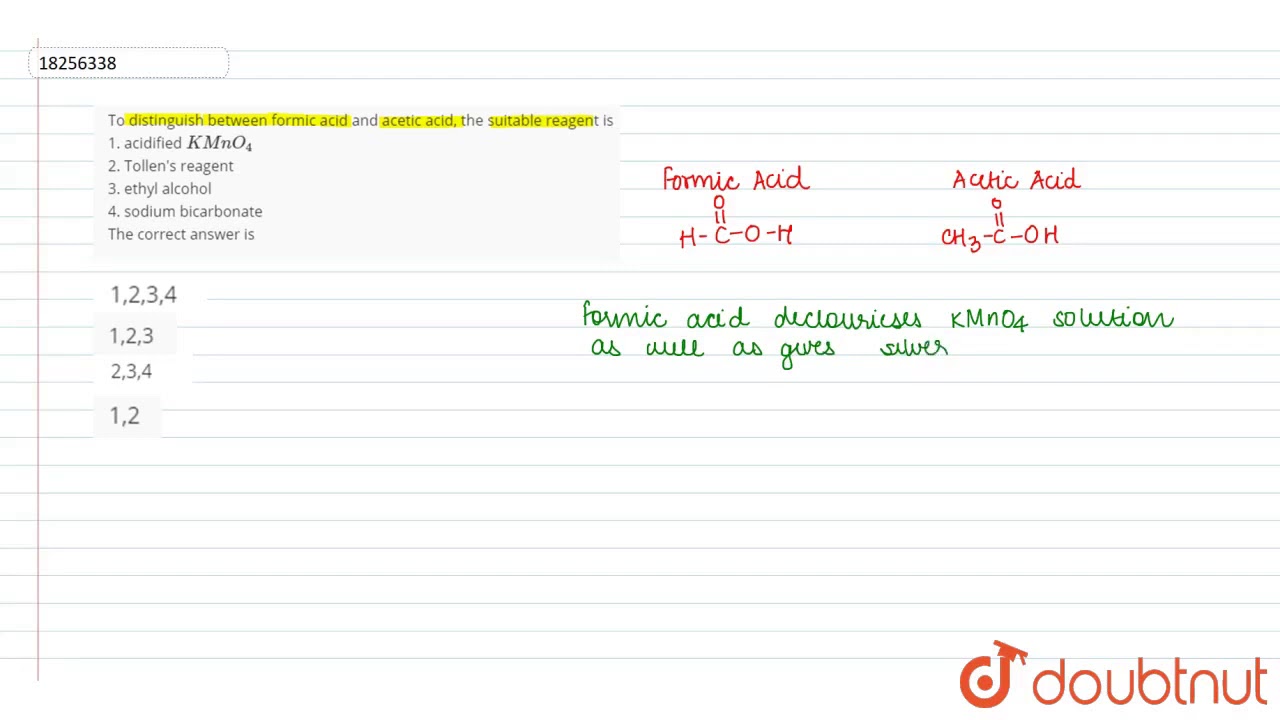 18256338
To distinguish between formic acid and acetic acid, the suitable reagent is
1. acidified KMnO4
2. Tollen's reagent
3. ethyl alcohol
4. sodium bicarbonate
The correct answer is
1,2,3,4
1,2,3
2,3,4
1,2
Formic Acid
O
||
H-C-O-H
Acetic Acid
O
||
CH3-C-OH
Formic acid declouricses KMnO4 solution
as well as gives silver
doubtnut